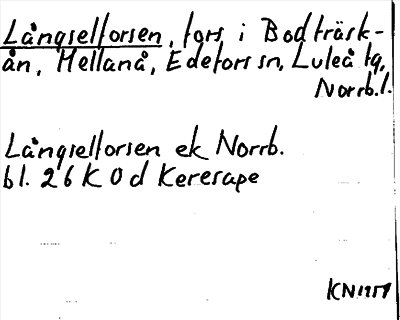 Långselforsen, fors i Bodträsk-
ån, Mellanå, Edefors sn, Luleå tg,
Norrb.l.
Långselforsen ek Norrb.
bl. 26 K 0 d Keresape
KN 1957